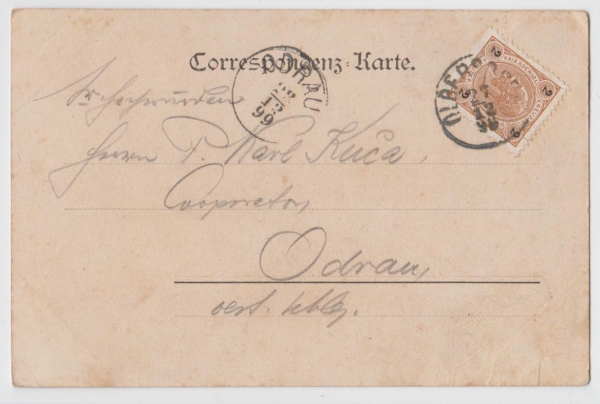 Correspondenz-Karte.
ODRAU
99
2 2 2
Sr. Hochwürden
Herrn P. Karl Kuča,
Cooperator,
Odrau,
oest. schlg.